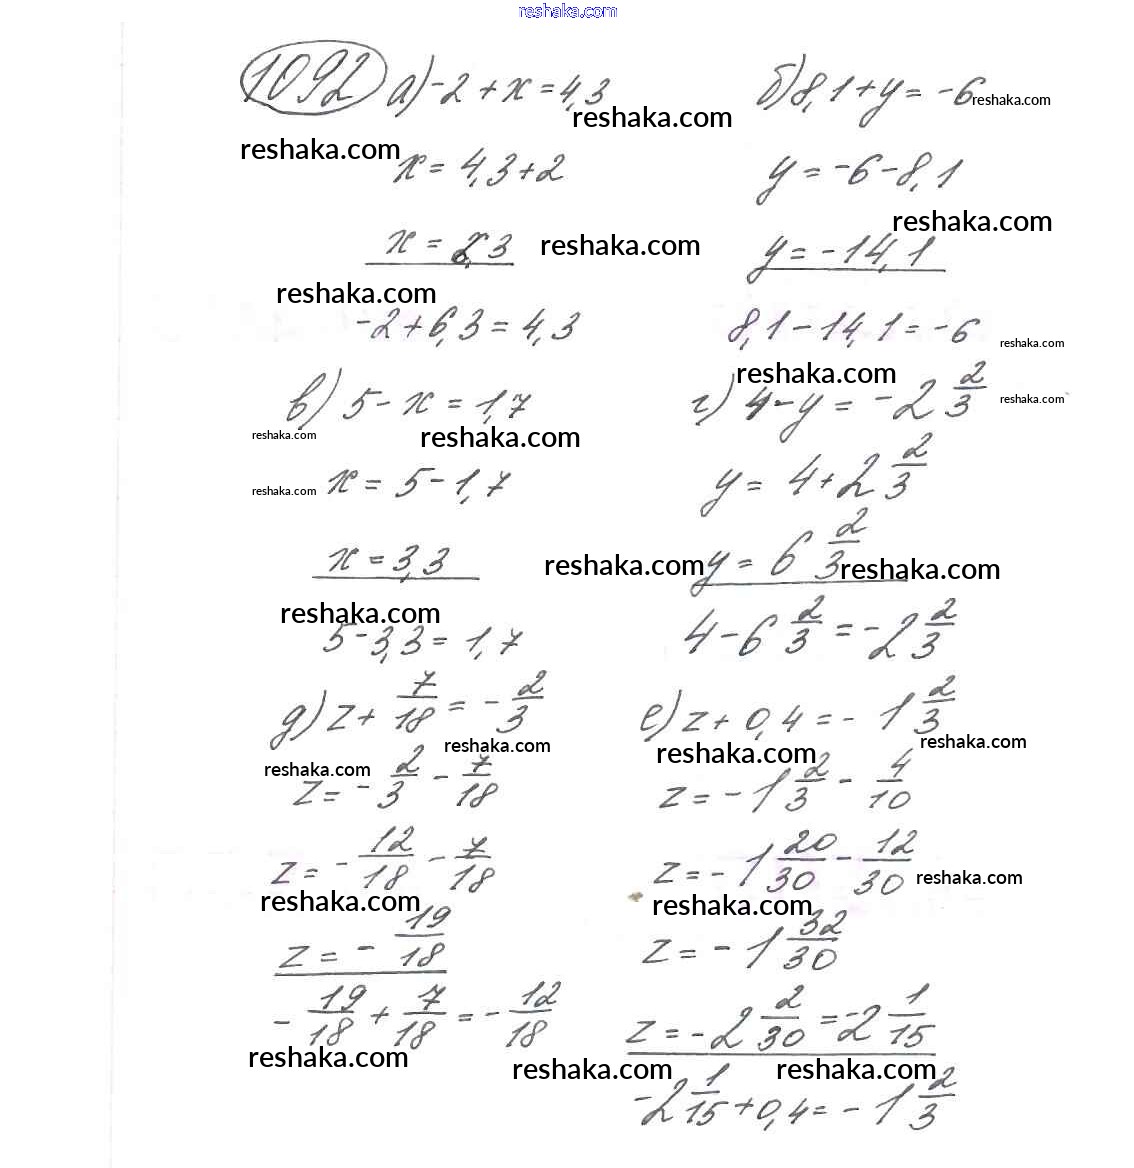 reshaka.com
1092 а) -2 + x = 4,3
reshaka.com
reshaka.com
x = 4,3 + 2
x = 6,3
reshaka.com
reshaka.com
-2 + 6,3 = 4,3
б) 8,1 + y = -6
reshaka.com
y = -6 - 8,1
reshaka.com
y = -14,1
8,1 - 14,1 = -6
reshaka.com
в) 5 - x = 1,7
reshaka.com
reshaka.com
reshaka.com
x = 5 - 1,7
x = 3,3
reshaka.com
reshaka.com
5 - 3,3 = 1,7
reshaka.com
г) 4 - y = -2 2/3
reshaka.com
y = 4 + 2 2/3
y = 6 2/3
reshaka.com
4 - 6 2/3 = -2 2/3
д) z + 7/18 = - 2/3
reshaka.com
reshaka.com
z = - 2/3 - 7/18
z = - 12/18 - 7/18
reshaka.com
z = - 19/18
- 19/18 + 7/18 = - 12/18
reshaka.com
е) z + 0,4 = - 1 2/3
reshaka.com
reshaka.com
z = - 1 2/3 - 4/10
z = - 1 20/30 - 12/30
reshaka.com
reshaka.com
z = - 1 32/30
z = - 2 2/30 = -2 1/15
reshaka.com
reshaka.com
-2 1/15 + 0,4 = - 1 2/3